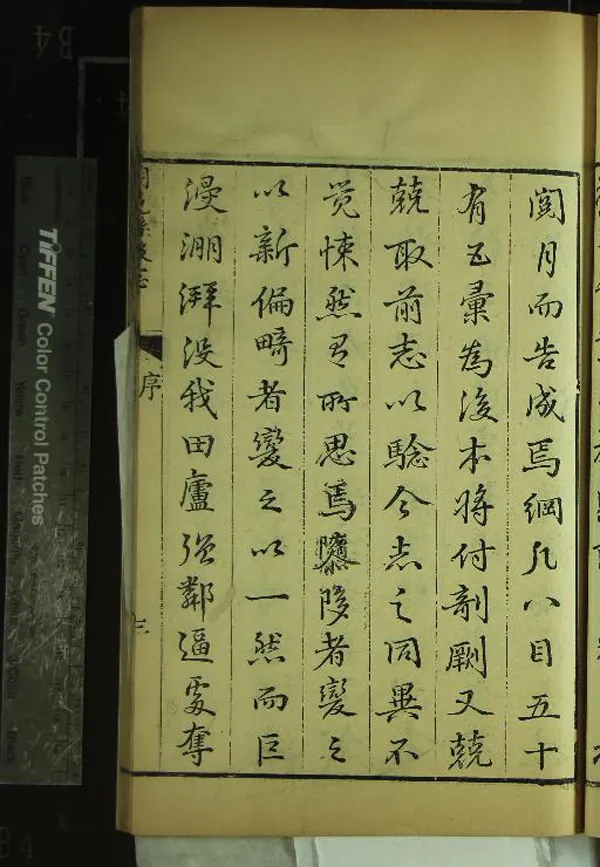 閲月而告成焉綱凡八目五十
有五彙為浚本将付剞劂又兢
兢取前志以騐今志之同異不
觉悚然有所思焉隳隊者變之
以新偏畸者變之以一然而巨
浸淜湃没我田廬强鄰逼處奪
序
三
TIFFEN Color Control Patches
B4